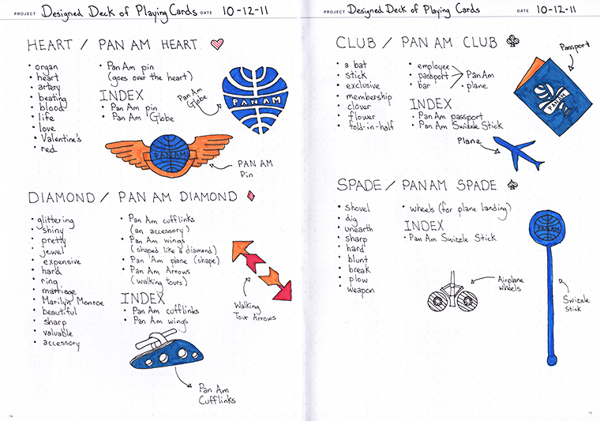 PROJECT Designed Deck of Playing Cards DATE 10-12-11
HEART / PAN AM HEART
• organ
• heart
• artery
• beating
• blood
• life
• love
• Valentine's
• red
• Pan Am pin
(goes over the heart)
INDEX
• Pan Am pin
• Pan Am Globe
Pan Am
Globe
PAN AM
PAN AM
PAN AM
Pin
DIAMOND / PAN AM DIAMOND
• glittering
• shiny
• pretty
• jewel
• expensive
• hard
• ring
• marriage
• Marilyn Monroe
• beautiful
• sharp
• valuable
• accessory
• Pan Am cufflinks
(an accessory)
• Pan Am wings
(shaped like a diamond)
• Pan Am plane (shape)
• Pan Am Arrows
(walking tours)
INDEX
• Pan Am cufflinks
• Pan Am wings
Walking
Tour Arrows
Pan Am
Cufflinks
PROJECT Designed Deck of Playing Cards DATE 10-12-11
CLUB / PAN AM CLUB
• a bat
• stick
• exclusive
• membership
• clover
• flower
• fold-in-half
• employee
• passport
• bar
Pan Am
plane
INDEX
• Pan Am passport
• Pan Am Swizzle Stick
Passport
PAN AM
Plane
SPADE / PAN AM SPADE
• shovel
• dig
• unearth
• sharp
• hard
• blunt
• break
• plow
• weapon
• wheels (for plane landing)
INDEX
• Pan Am Swizzle Stick
Airplane
Wheels
PAN AM
Swizzle
Stick